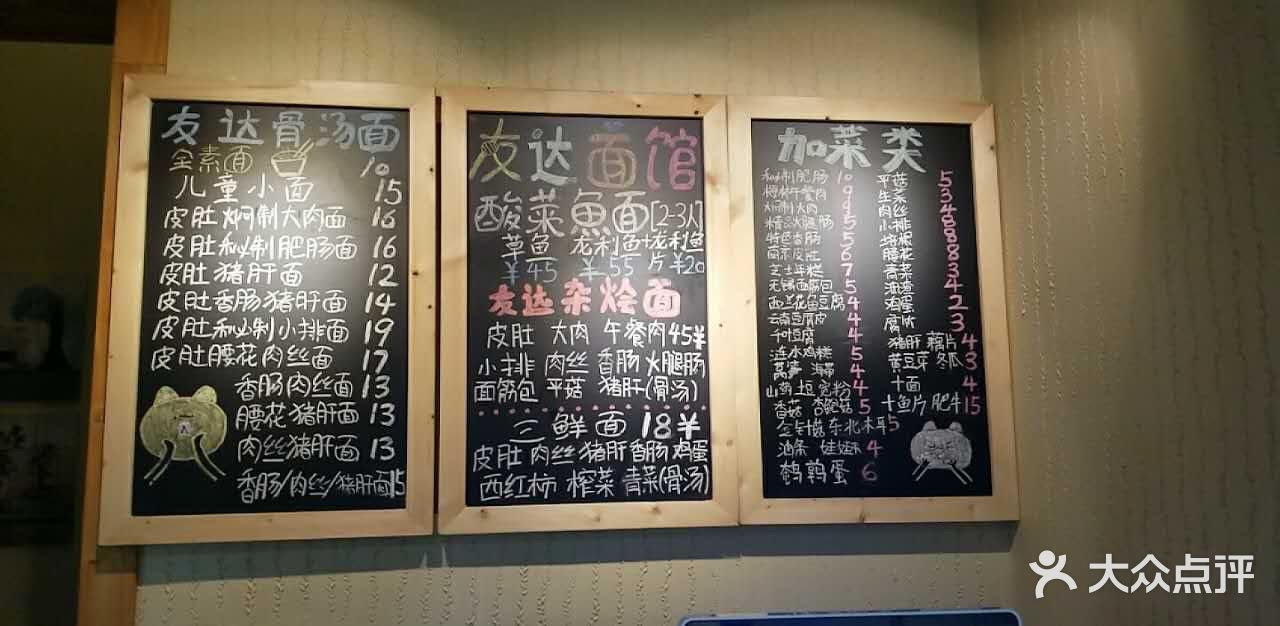 友达骨汤面
全素面 10
儿童小面 15
皮肚焖制大肉面 16
皮肚秘制肥肠面 16
皮肚猪肝面 12
皮肚香肠猪肝面 14
皮肚秘制小排面 19
皮肚腰花肉丝面 17
香肠肉丝面 13
腰花猪肝面 13
肉丝猪肝面 13
香肠/肉丝/猪肝面15
友达面馆
酸菜魚面[2-3人]
草鱼 龙利鱼+龙利鱼
¥45 ¥55 片¥20
友达杂烩面
皮肚 大肉 午餐肉 45¥
小排 肉丝 香肠 火腿肠
面筋包 平菇 猪肝(骨汤)
三鲜面 18¥
皮肚 肉丝 猪肝 香肠 鸡蛋
西红柿 榨菜 青菜(骨汤)
加菜类
秘制肥肠 10
梅林午餐肉 9
焖制大肉 9
精品火腿肠 5
特色香肠 5
南京皮肚 6
芝士年糕 7
无锡面筋包 5
西兰花鱼豆腐 4
云南豆腐皮 4
千叶豆腐 4
涟水鸡糕 5
莴笋 海带 4
山药 土豆 宽粉 4
香菇 杏鲍菇 5
金针菇 东北木耳 5
油条 娃娃菜 4
鹌鹑蛋 6
平菇 5
生菜 3
肉丝 4
小排 8
腰花
青菜
油渣
鸡蛋
猪肝 藕片 4
黄豆芽 冬瓜 3
+面 4
+鱼片 肥牛 15
大众点评